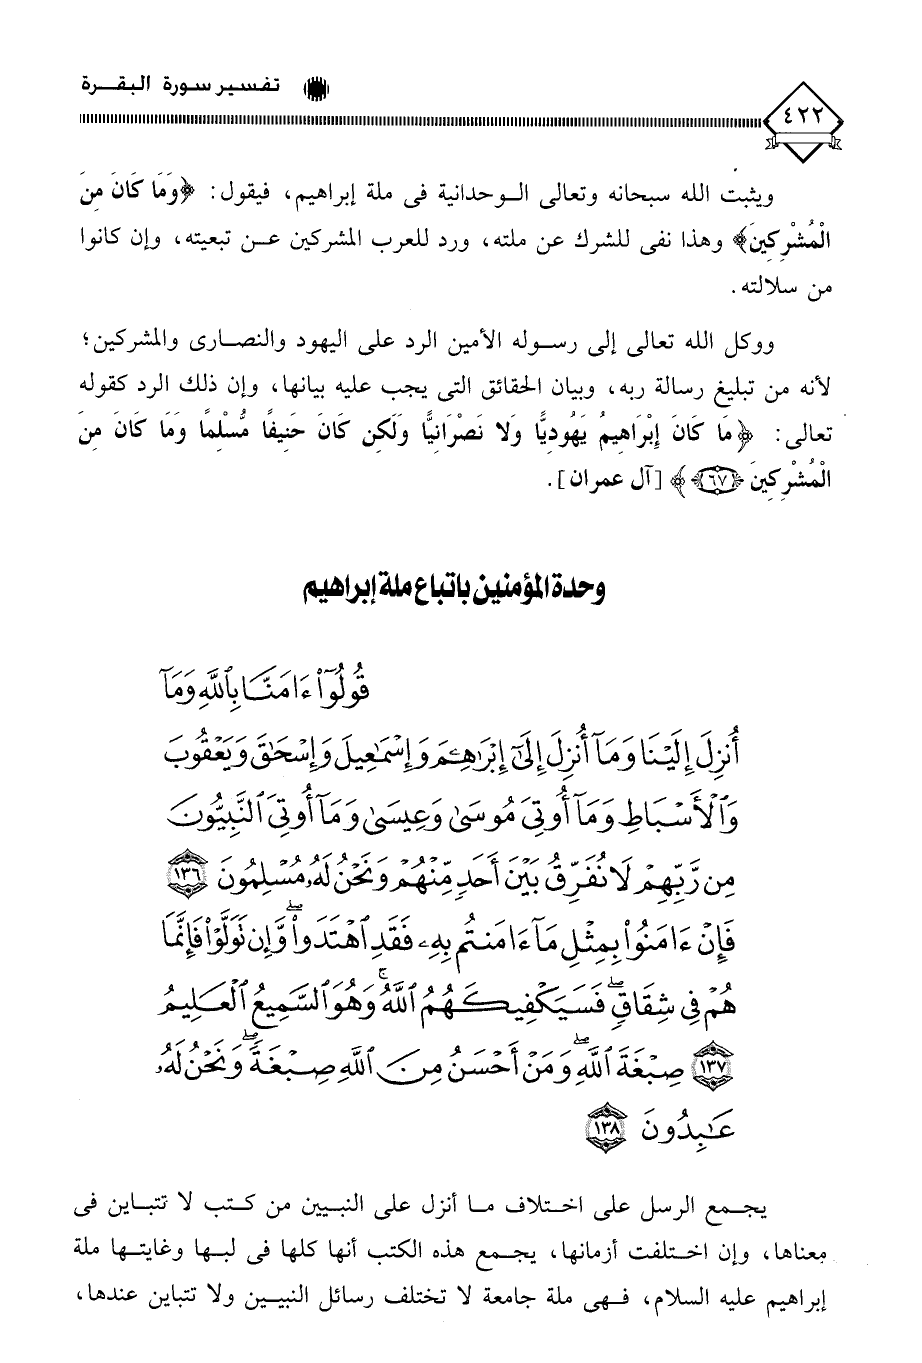 تفسير سورة البقرة
٤٢٢
ويثبت الله سبحانه وتعالى الوحدانية فى ملة إبراهيم، فيقول: ﴿وَمَا كَانَ مِنَ
الْمُشْرِكِينَ﴾ وهذا نفى للشرك عن ملته، ورد للعرب المشركين عن تبعيته، وإن كانوا
من سلالته.
ووكل الله تعالى إلى رسوله الأمين الرد على اليهود والنصارى والمشركين؛
لأنه من تبليغ رسالة ربه، وبيان الحقائق التى يجب عليه بيانها، وإن ذلك الرد كقوله
تعالى: ﴿مَا كَانَ إِبْرَاهِيمُ يَهُودِيًّا وَلا نَصْرَانِيًّا وَلَكِن كَانَ حَنِيفًا مُّسْلِمًا وَمَا كَانَ مِنَ
الْمُشْرِكِينَ (٦٧)﴾ [آل عمران].
وحدة المؤمنين باتباع ملة إبراهيم
قُولُوٓا۟ ءَامَنَّا بِٱللَّهِ وَمَآ
أُنزِلَ إِلَيْنَا وَمَآ أُنزِلَ إِلَىٰٓ إِبْرَٰهِـۧمَ وَإِسْمَٰعِيلَ وَإِسْحَٰقَ وَيَعْقُوبَ
وَٱلْأَسْبَاطِ وَمَآ أُوتِىَ مُوسَىٰ وَعِيسَىٰ وَمَآ أُوتِىَ ٱلنَّبِيُّونَ
مِن رَّبِّهِمْ لَا نُفَرِّقُ بَيْنَ أَحَدٍ مِّنْهُمْ وَنَحْنُ لَهُۥ مُسْلِمُونَ ١٣٦
فَإِنْ ءَامَنُوا۟ بِمِثْلِ مَآ ءَامَنتُم بِهِۦ فَقَدِ ٱهْتَدَوا۟ ۖ وَّإِن تَوَلَّوْا۟ فَإِنَّمَا
هُمْ فِى شِقَاقٍ ۖ فَسَيَكْفِيكَهُمُ ٱللَّهُ ۚ وَهُوَ ٱلسَّمِيعُ ٱلْعَلِيمُ
١٣٧ صِبْغَةَ ٱللَّهِ ۖ وَمَنْ أَحْسَنُ مِنَ ٱللَّهِ صِبْغَةً ۖ وَنَحْنُ لَهُۥ
عَٰبِدُونَ ١٣٨
يجمع الرسل على اختلاف ما أنزل على النبيين من كتب لا تتباين فى
معناها، وإن اختلفت أزمانها، يجمع هذه الكتب أنها كلها فى لبها وغايتها ملة
إبراهيم عليه السلام، فهى ملة جامعة لا تختلف رسائل النبيين ولا تتباين عندها،